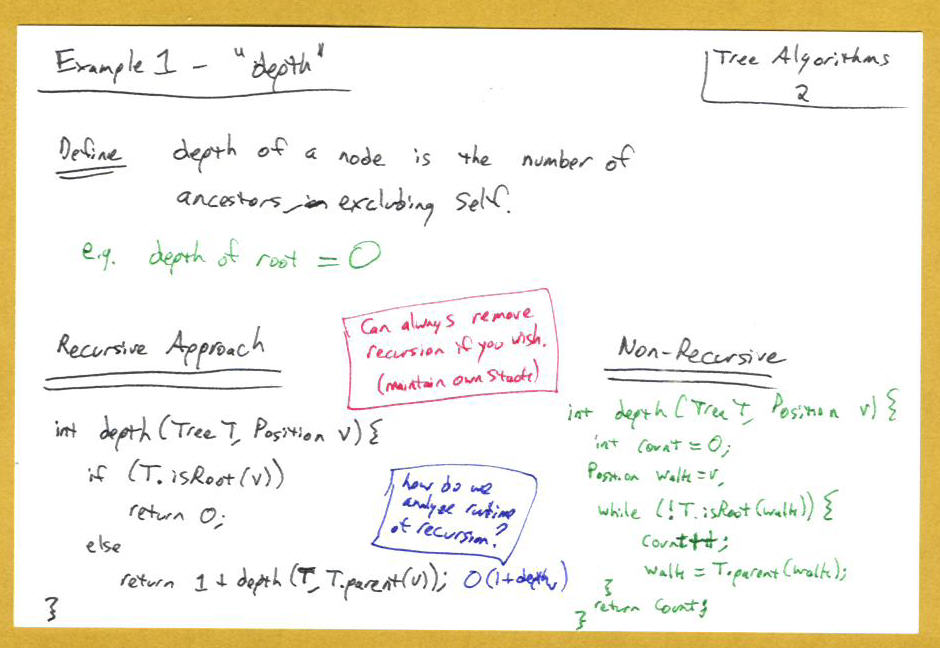 Example 1 - "depth"
Tree Algorithms
2
Define depth of a node is the number of
ancestors excluding self.
e.g. depth of root = 0
Can always remove
recursion if you wish.
(maintain own stack)
Recursive Approach
int depth(Tree T, Position v) {
if (T.isRoot(v))
return 0;
else
return 1 + depth(T, T.parent(v)); O(1+depthv)
}
how do we
analyze runtime
of recursion?
Non-Recursive
int depth(Tree T, Position v) {
int count = 0;
Position walk = v;
while (!T.isRoot(walk)) {
count++;
walk = T.parent(walk);
}
return count;
}